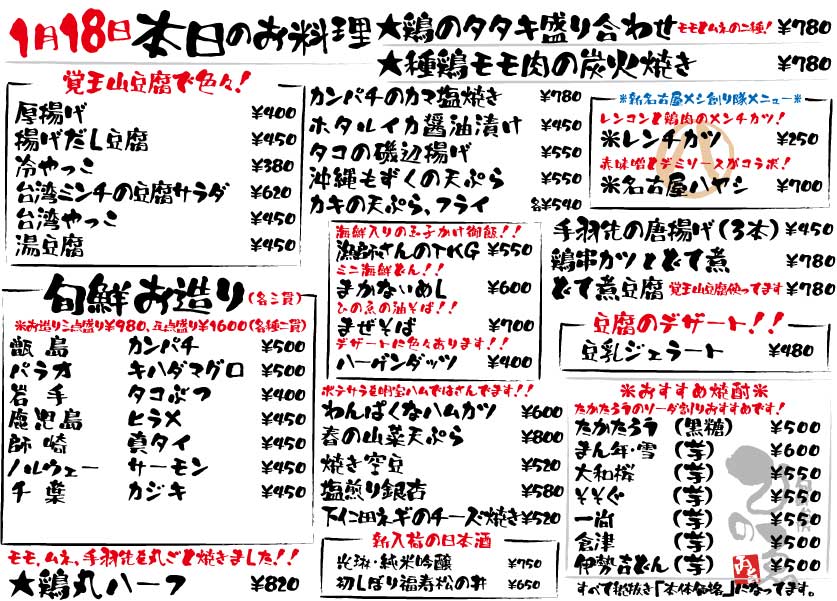 1月18日 本日のお料理
★鶏のタタキ盛り合わせ モモとムネの二種! ¥780
★種鶏モモ肉の炭火焼き ¥780
覚王山豆腐で色々!
厚揚げ ¥400
揚げだし豆腐 ¥450
冷やっこ ¥380
台湾ミンチの豆腐サラダ ¥620
台湾やっこ ¥450
湯豆腐 ¥450
旬鮮お造り(各三貫)
※お造り三点盛り¥980、五点盛り¥1600(各種二貫)
甑島 カンパチ ¥500
パラオ キハダマグロ ¥500
岩手 タコぶつ ¥400
鹿児島 ヒラメ ¥450
師崎 真タイ ¥450
ノルウェー サーモン ¥450
千葉 カジキ ¥450
モモ、ムネ、手羽先を丸ごと焼きました!!
★鶏丸ハーフ ¥820
カンパチのカマ塩焼き ¥780
ホタルイカ醤油漬け ¥450
タコの磯辺揚げ ¥550
沖縄もずくの天ぷら ¥550
カキの天ぷら、フライ 各¥540
海鮮入りの玉子かけ御飯!!
漁師さんのTKG ¥550
ミニ海鮮どん!!
まかないめし ¥600
ひの鳥の油そば!!
まぜそば ¥700
デザートに色々あります!!
ハーゲンダッツ ¥400
ポテサラを明宝ハムではさんでます!!
わんぱくなハムカツ ¥600
春の山菜天ぷら ¥800
焼き空豆 ¥520
塩煎り銀杏 ¥580
下仁田ネギのチーズ焼き ¥520
新入荷の日本酒
純米吟醸 ¥750
初しぼり福寿松の井 ¥650
※新名古屋メシ創り隊メニュー※
レンコンと鶏肉のメンチカツ!
※レンチカツ ¥250
赤味噌とデミソースがコラボ!
※名古屋ハヤシ ¥700
手羽先の唐揚げ(3本) ¥450
鶏串カツとどて煮 ¥780
どて煮豆腐 覚王山豆腐使ってます ¥780
豆腐のデザート!!
豆乳ジェラート ¥480
※おすすめ焼酎※
たかたろうのソーダ割りおすすめです!
たかたろう (黒糖) ¥500
まん年・雪 (芋) ¥600
大和桜 (芋) ¥550
そそぐ (芋) ¥550
一尚 (芋) ¥550
倉津 (芋) ¥550
伊勢吉どん (芋) ¥500
すべて税抜き「本体価格」になってます。